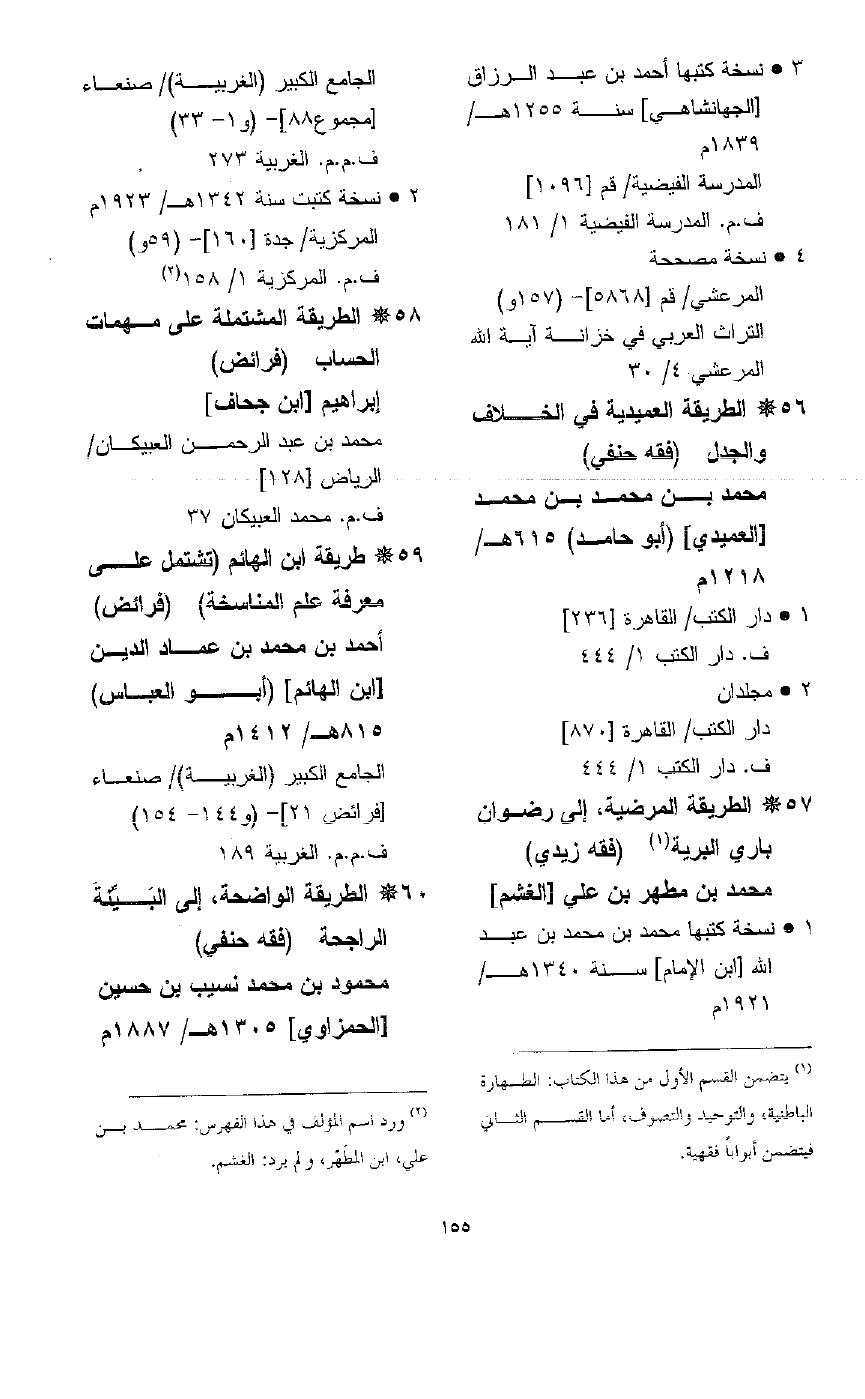 ٣ • نسخة كتبها أحمد بن عبد الرزاق
[الجهانشاهي] سنة ١٢٥٥هـ/
١٨٣٩م
المدرسة الفيضية/ قم [١٠٩٦]
ف.م. المدرسة الفيضية ١/ ١٨١
٤ • نسخة مصححة
المرعشي/ قم [٥٨٦٨]- (١٥٧و)
التراث العربي في خزانة آية الله
المرعشي ٤/ ٣٠
٥٦❋ الطريقة العميدية في الخلاف
والجدل (فقه حنفي)
محمد بن محمد بن محمد
[العميدي] (أبو حامد) ٦١٥هـ/
١٢١٨م
١ • دار الكتب/ القاهرة [٢٣٦]
ف. دار الكتب ١/ ٤٤٤
٢ • مجلدان
دار الكتب/ القاهرة [٨٧٠]
ف. دار الكتب ١/ ٤٤٤
٥٧❋ الطريقة المرضية، إلى رضوان
باري البرية(١) (فقه زيدي)
محمد بن مطهر بن علي [الغشم]
١ • نسخة كتبها محمد بن محمد بن عبد
الله [ابن الإمام] سنة ١٣٤٠هـ/
١٩٢١م
(١) يتضمن القسم الأول من هذا الكتاب: الطهارة
الباطنية، والتوحيد والتصوف، أما القسم الثاني
فيتضمن أبواباً فقهية.
الجامع الكبير (الغربية)/ صنعاء
[مجموع٨٨]- (و١- ٣٣)
ف.م.م. الغربية ٢٧٣
٢ • نسخة كتبت سنة ١٣٤٢هـ/ ١٩٢٣م
المركزية/ جدة [١٦٠]- (٥٩و)
ف.م. المركزية ١/ ١٥٨(٢)
٥٨❋ الطريقة المشتملة على مهمات
الحساب (فرائض)
إبراهيم [ابن جحاف]
محمد بن عبد الرحمن العبيكان/
الرياض [١٢٨]
ف.م. محمد العبيكان ٣٧
٥٩❋ طريقة ابن الهائم (تشتمل على
معرفة علم المناسخة) (فرائض)
أحمد بن محمد بن عماد الدين
[ابن الهائم] (أبو العباس)
٨١٥هـ/ ١٤١٢م
الجامع الكبير (الغربية)/ صنعاء
[فرائض ٢١]- (و١٤٤- ١٥٤)
ف.م.م. الغربية ١٨٩
٦٠❋ الطريقة الواضحة، إلى البَيِّنةَ
الراجحة (فقه حنفي)
محمود بن محمد نسيب بن حسين
[الحمزاوي] ١٣٠٥هـ/ ١٨٨٧م
(٢) ورد اسم المؤلف في هذا الفهرس: محمد بن
علي، ابن المطَهّر، ولم يرد: الغشم.
١٥٥